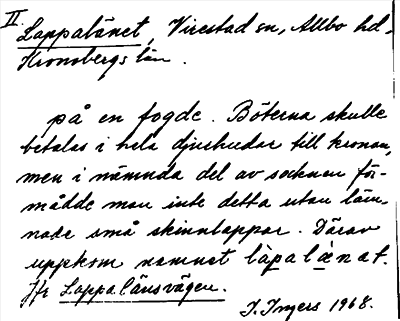 II.
Lappalänet, Virestad sn, Allbo hd,
Kronobergs län.
på en fogde. Böterna skulle
betalas i hela djurhudar till kronan,
men i nämnda del av socknen för-
mådde man inte detta utan läm-
nade små skinnlappar. Därav
uppkom namnet làpalǽnat.
Jfr Lappalänsvägen.
I. Ingers 1968.